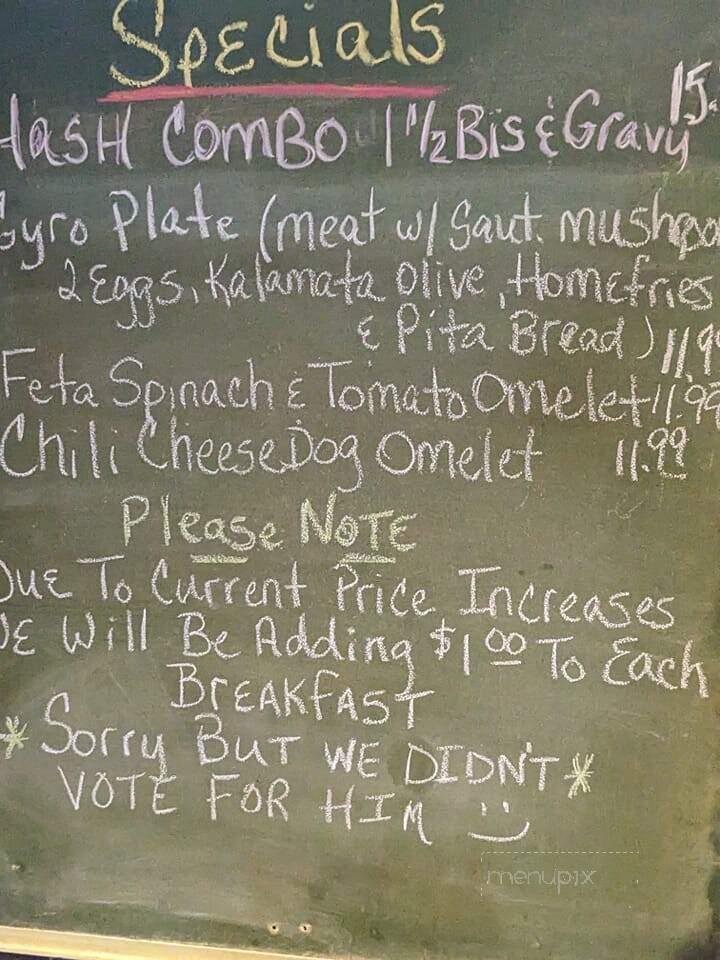 Specials
HASH COMBO 1 1/2 Bis & Gravy 15.
Gyro Plate (meat w/ Saut. mushroo
2 Eggs, Kalamata Olive, Homefries
& Pita Bread) 11.9
Feta Spinach & Tomato Omelet 11.99
Chili Cheese Dog Omelet 11.99
Please NOTE
DUE To Current Price Increases
WE Will Be Adding $1.00 To Each
BREAKFAST
*Sorry BUT WE DIDN'T*
VOTE FOR HIM :)
menupix